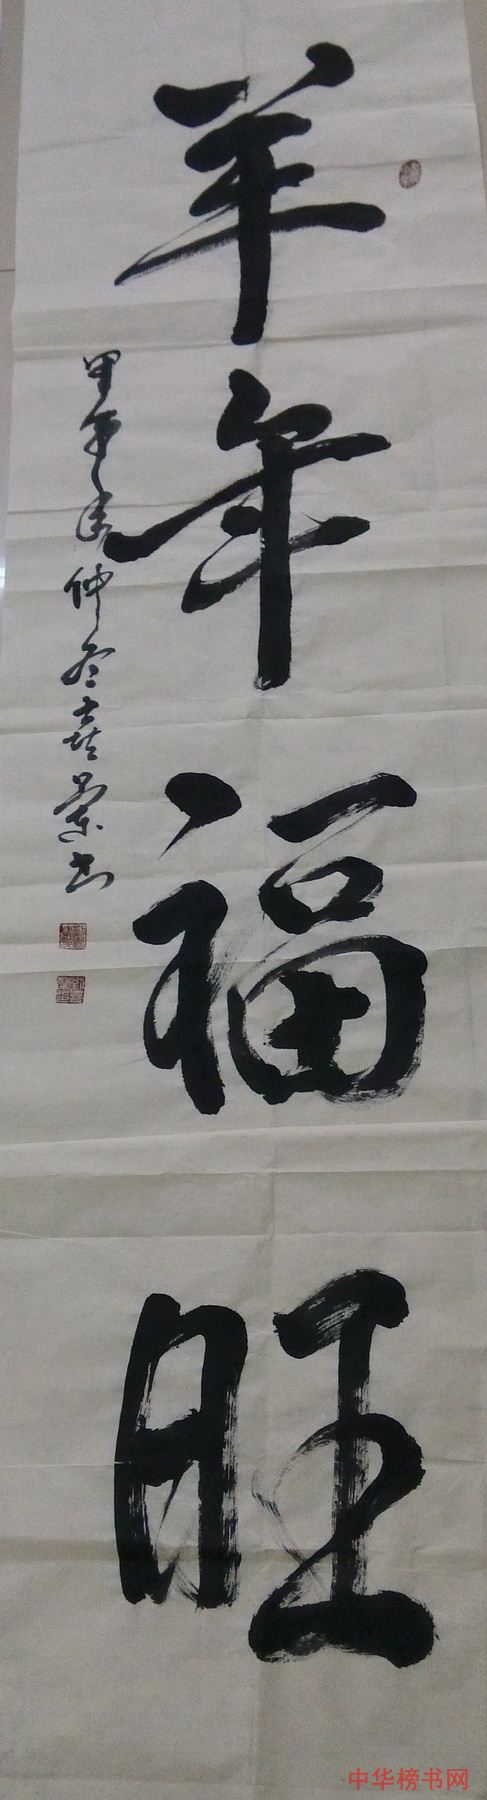 羊年福旺
甲午年仲冬喜荣书
中华榜书网